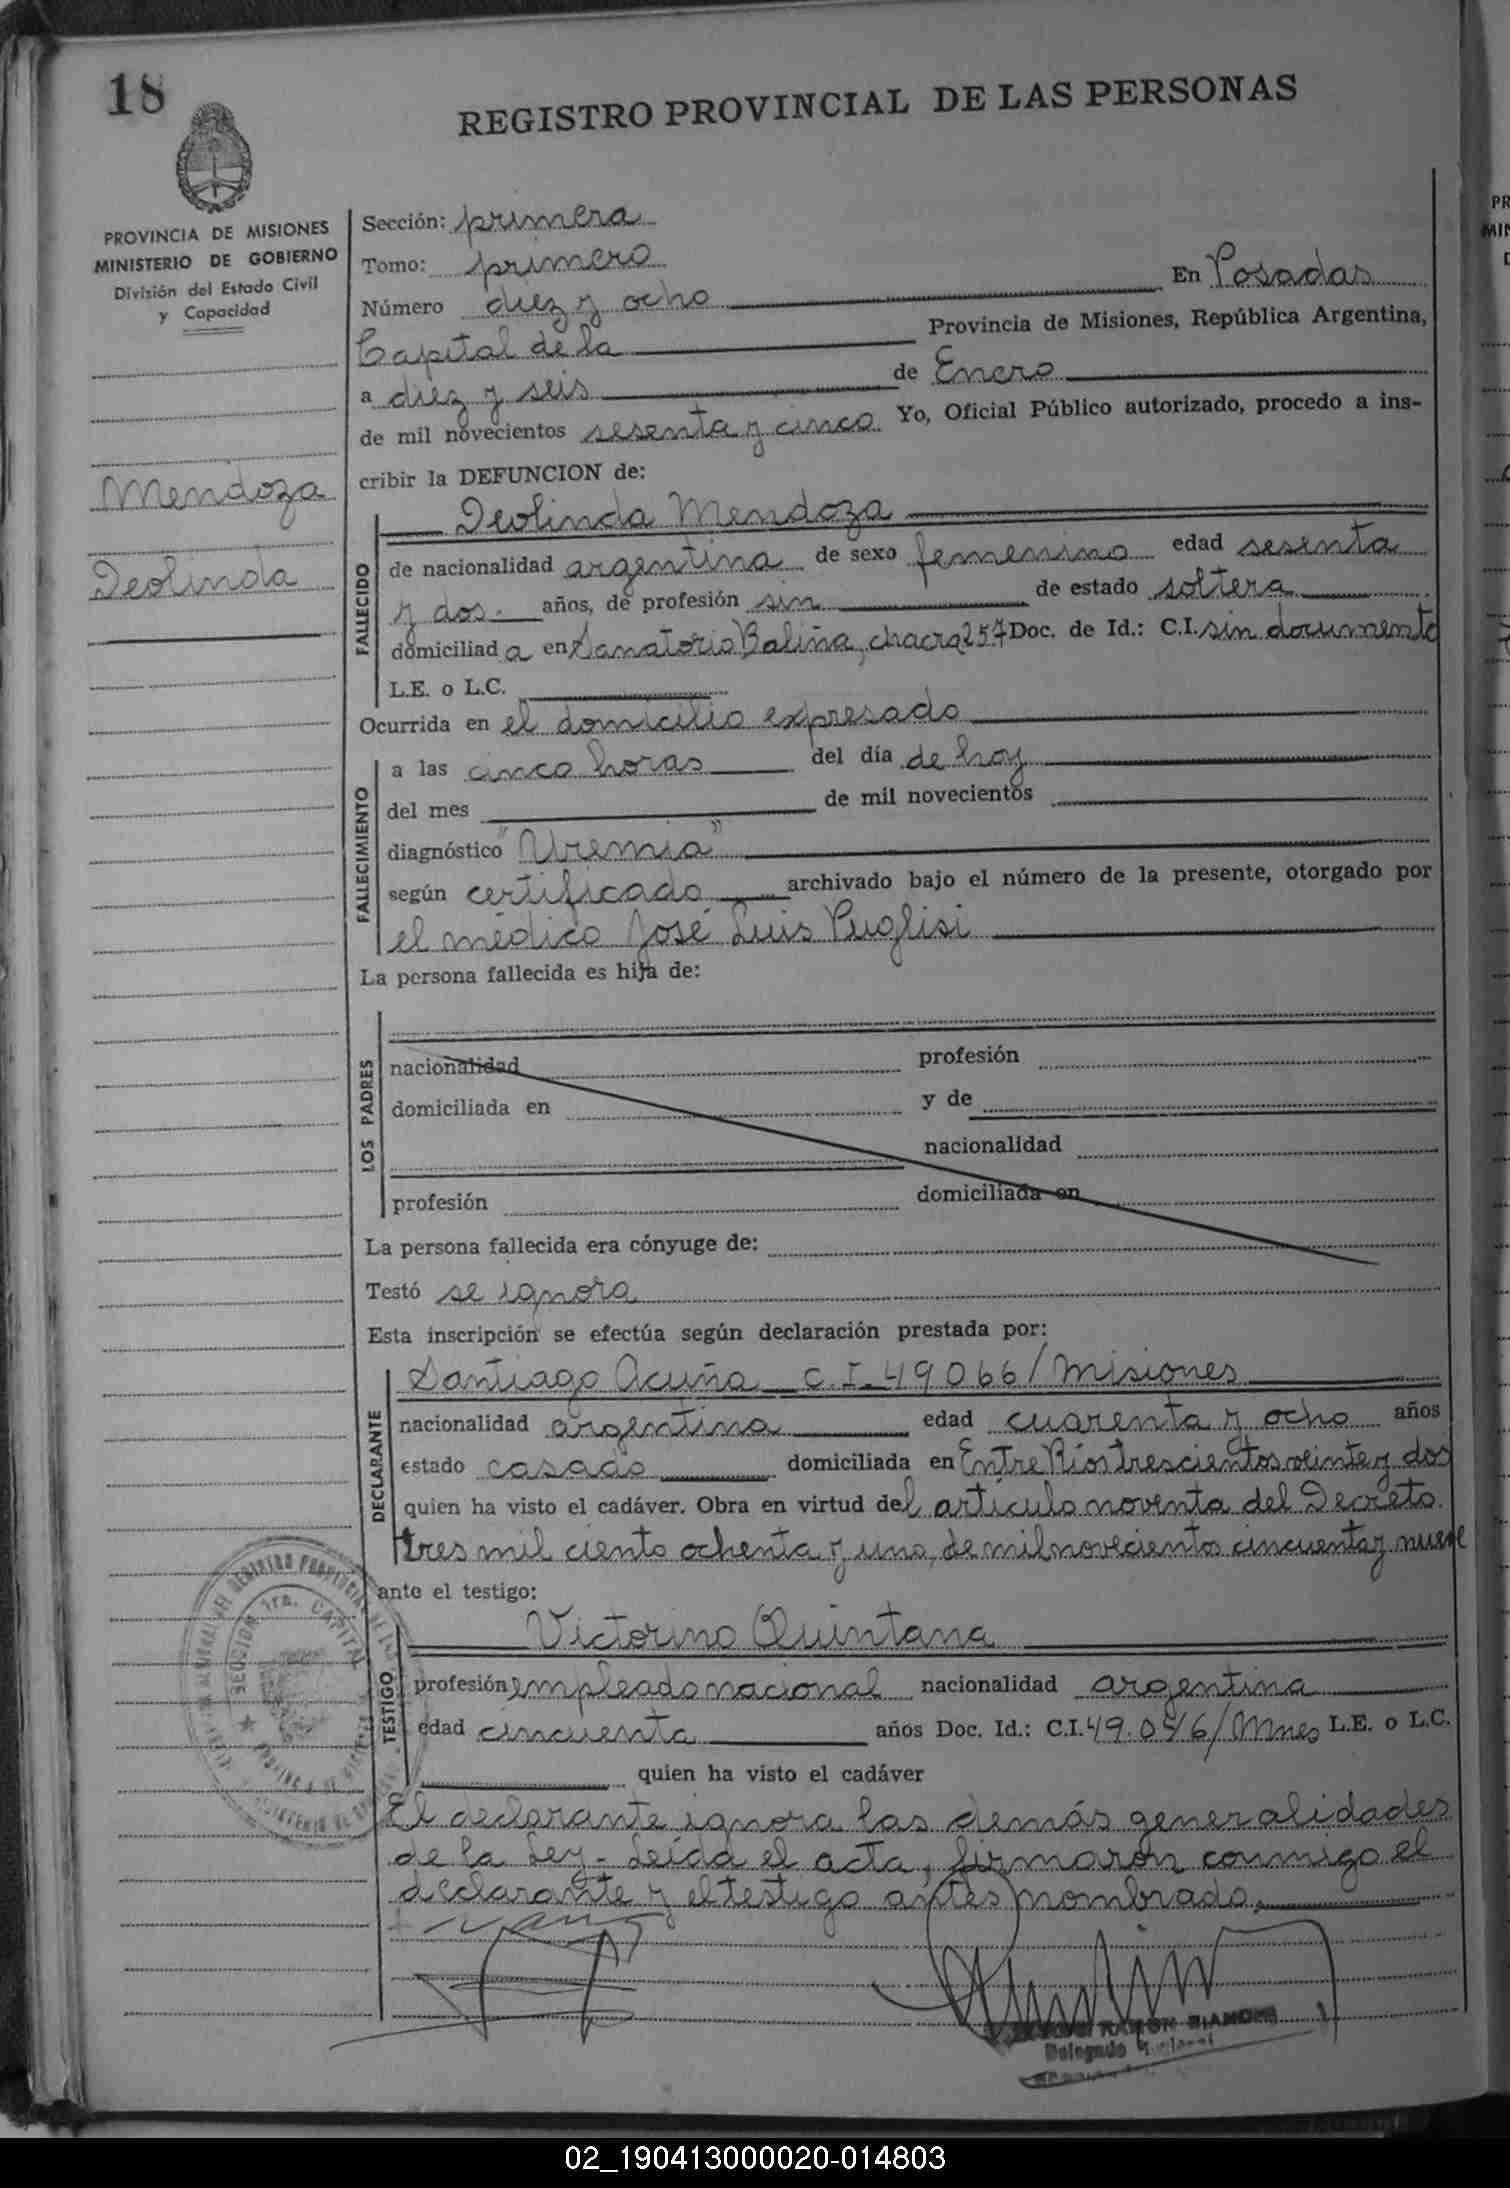 18
REGISTRO PROVINCIAL DE LAS PERSONAS
PROVINCIA DE MISIONES
MINISTERIO DE GOBIERNO
División del Estado Civil
y Capacidad
Mendoza
Deolinda
Sección: primera
Tomo: primero
Número diez y ocho En Posadas
Capital de la Provincia de Misiones, República Argentina,
a diez y seis de Enero
de mil novecientos sesenta y cinco Yo, Oficial Público autorizado, procedo a ins-
cribir la DEFUNCION de:
FALLECIDO
Deolinda Mendoza
de nacionalidad argentina de sexo femenino edad sesenta
y dos. años, de profesión sin de estado soltera
domiciliad a en Sanatorio Baliña, chacra 257 Doc. de Id.: C.I. sin documento
L.E. o L.C.
Ocurrida en el domicilio expresado
FALLECIMIENTO
a las cinco horas del día de hoy
del mes de mil novecientos
diagnóstico "Uremia"
según certificado archivado bajo el número de la presente, otorgado por
el médico José Luis Puglisi
La persona fallecida es hija de:
LOS PADRES
nacionalidad profesión
domiciliada en y de
nacionalidad
profesión domiciliada en
La persona fallecida era cónyuge de:
Testó se ignora
Esta inscripción se efectúa según declaración prestada por:
DECLARANTE
Santiago Acuña C.I. 49066/Misiones
nacionalidad argentina edad cuarenta y ocho años
estado casado domiciliada en Entre Ríos trescientos veinte y dos
quien ha visto el cadáver. Obra en virtud del artículo noventa del Decreto
tres mil ciento ochenta y uno, de mil novecientos cincuenta y nueve
ante el testigo:
TESTIGO
Victorino Quintana
profesión empleado nacional nacionalidad argentina
edad cincuenta años Doc. Id.: C.I. 49.056/Mnes L.E. o L.C.
quien ha visto el cadáver
El declarante ignora las demás generalidades
de la Ley - Leída el acta, firmaron conmigo el
declarante y el testigo antes nombrado.
SECCION 1ra. CAPITAL
RAMON BIANCHI
Delegado
02_190413000020-014803